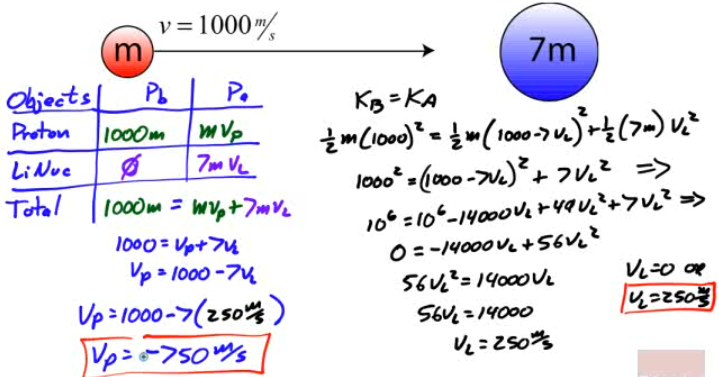 v = 1000 m/s
m
7m
Objects | P_b | P_a
Proton | 1000m | mV_P
LiNuc | ∅ | 7mV_L
Total | 1000m = mV_P + 7mV_L
1000 = V_P + 7V_L
V_P = 1000 - 7V_L
V_P = 1000 - 7(250 m/s)
V_P = -750 m/s
K_B = K_A
½m(1000)² = ½m(1000-7V_L)² + ½(7m)V_L²
1000² = (1000-7V_L)² + 7V_L² =>
10⁶ = 10⁶ - 14000V_L + 49V_L² + 7V_L² =>
0 = -14000V_L + 56V_L²
56V_L² = 14000V_L
56V_L = 14000
V_L = 250 m/s
V_L = 0 or
V_L = 250 m/s